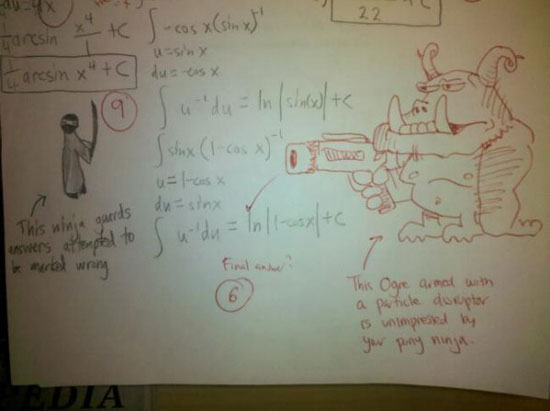 du = 4x
1/4 arcsin x⁴/1 + C
1/4 arcsin x⁴ + C
9
This ninja guards
answers attempted to
be marked wrong
∫ -cos x (sin x)⁻¹
u = sin x
du = -cos x
∫ u⁻¹ du = ln |sin(x)| + C
∫ sin x (1-cos x)⁻¹
u = 1-cos x
du = sin x
∫ u⁻¹ du = ln |1-cos x| + C
Final answer?
6
22
+ C
This Ogre armed with
a particle disruptor
is unimpressed by
your puny ninja.
EDIA